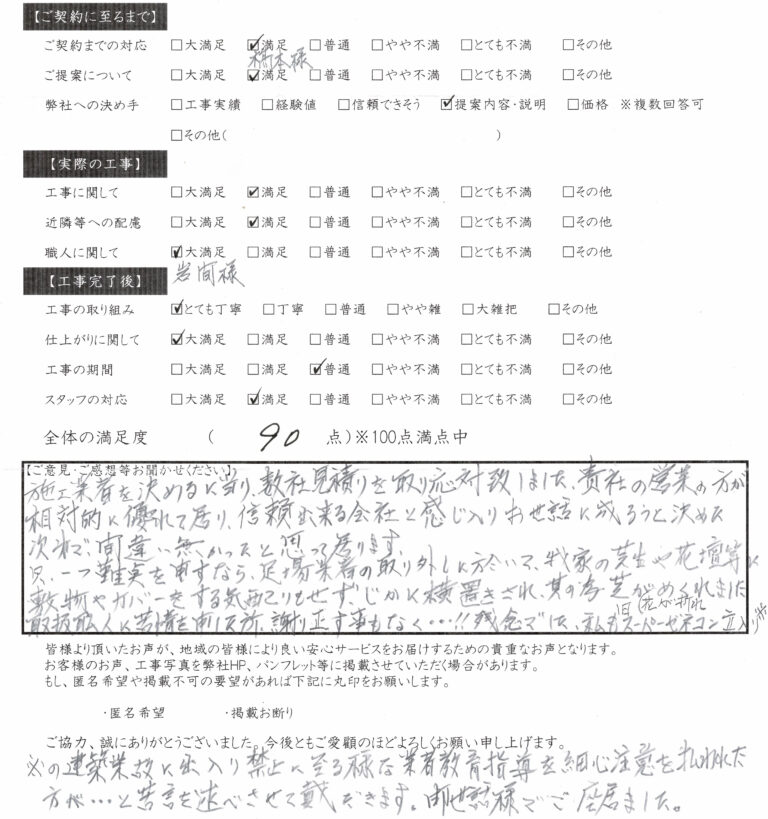 【ご契約に至るまで】
ご契約までの対応 □大満足 ☑満足 □普通 □やや不満 □とても不満 □その他
橋本様
ご提案について □大満足 ☑満足 □普通 □やや不満 □とても不満 □その他
弊社への決め手 □工事実績 □経験値 □信頼できそう ☑提案内容・説明 □価格 ※複数回答可
□その他( )
【実際の工事】
工事に関して □大満足 ☑満足 □普通 □やや不満 □とても不満 □その他
近隣等への配慮 □大満足 ☑満足 □普通 □やや不満 □とても不満 □その他
職人に関して ☑大満足 □満足 □普通 □やや不満 □とても不満 □その他
岩間様
【工事完了後】
工事の取り組み ☑とても丁寧 □丁寧 □普通 □やや雑 □大雑把 □その他
仕上がりに関して ☑大満足 □満足 □普通 □やや不満 □とても不満 □その他
工事の期間 □大満足 □満足 ☑普通 □やや不満 □とても不満 □その他
スタッフの対応 □大満足 ☑満足 □普通 □やや不満 □とても不満 □その他
全体の満足度 ( 90 点)※100点満点中
【ご意見・ご感想等お聞かせください】
施工業者を決めるに当り、数社見積りを取り応対致しました、貴社の営業の方が
相対的に優れて居り、信頼出来る会社と感じ入りお世話に成ろうと決めた
次第で、間違い無かったと思って居ります。
只、一つ難点を申すなら、足場業者の取り外しに於いて、我家の芝生や花壇等に
敷物やカバーをする気配りもせずじかに横置きされ、其の為芝がめくれました
(花が折れ
取扱職人に苦情を申した所、謝り正す事もなく…!!残念でした、私も旧スーパーゼネコン立入り
皆様より頂いたお声が、地域の皆様により良い安心サービスをお届けするための貴重なお声となります。
お客様のお声、工事写真を弊社HP、パンフレット等に掲載させていただく場合があります。
もし、匿名希望や掲載不可の要望があれば下記に丸印をお願いします。
・匿名希望 ・掲載お断り
ご協力、誠にありがとうございました。今後ともご愛顧のほどよろしくお願い申し上げます。
※の建築業故に出入り禁止に至る様な業者教育指導を細心注意を払われた
方が…と苦言を述べさせて戴だきます。御世話様でご座居ました。